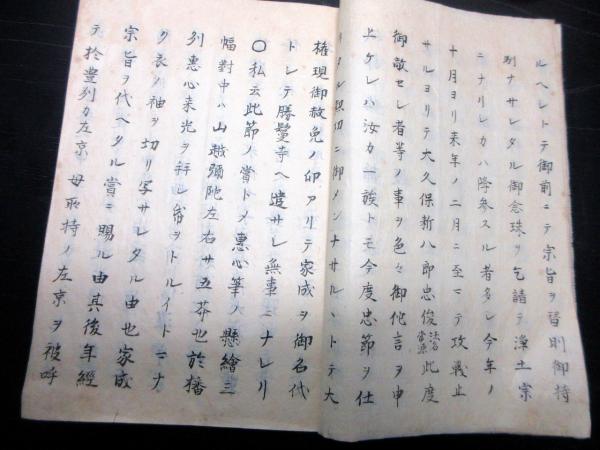 ルヘレトテ御前ニテ宗旨ヲ替則御持
別ナサレタル御念珠ヲ乞請テ浄土宗
ニナリレカハ降参スル者多レ今年ノ
十月ヨリ来年ノ二月ニ至ニテ攻戦止
サルヨリテ大久保新八郎忠俊 此度
御敵セレ者等ノ事ヲ色々御侘言ヲ申
上ケレハ汝カ一族トモ今度忠節ヲ仕
タル 切ニ御メンナサルヽトテ大
権現御赦免ノ印アリテ家成ヲ御名代
トレテ勝鬘寺ヘ遣サレ無事ニナレリ
〇私云此節ノ賞トメ惠心筆ノ懸繪三
幅對中ハ山越彌陀左右サ五菩也於播
列惠心来光ヲ拜レ餘ヲトルイトニナ
ク衣ノ袖ヲ切リ写サレタル由也家成
宗旨ヲ代ベタル賞ニ賜ル由其後年經
テ於豊列カ左京 毋取持ノ左京ヲ被呼